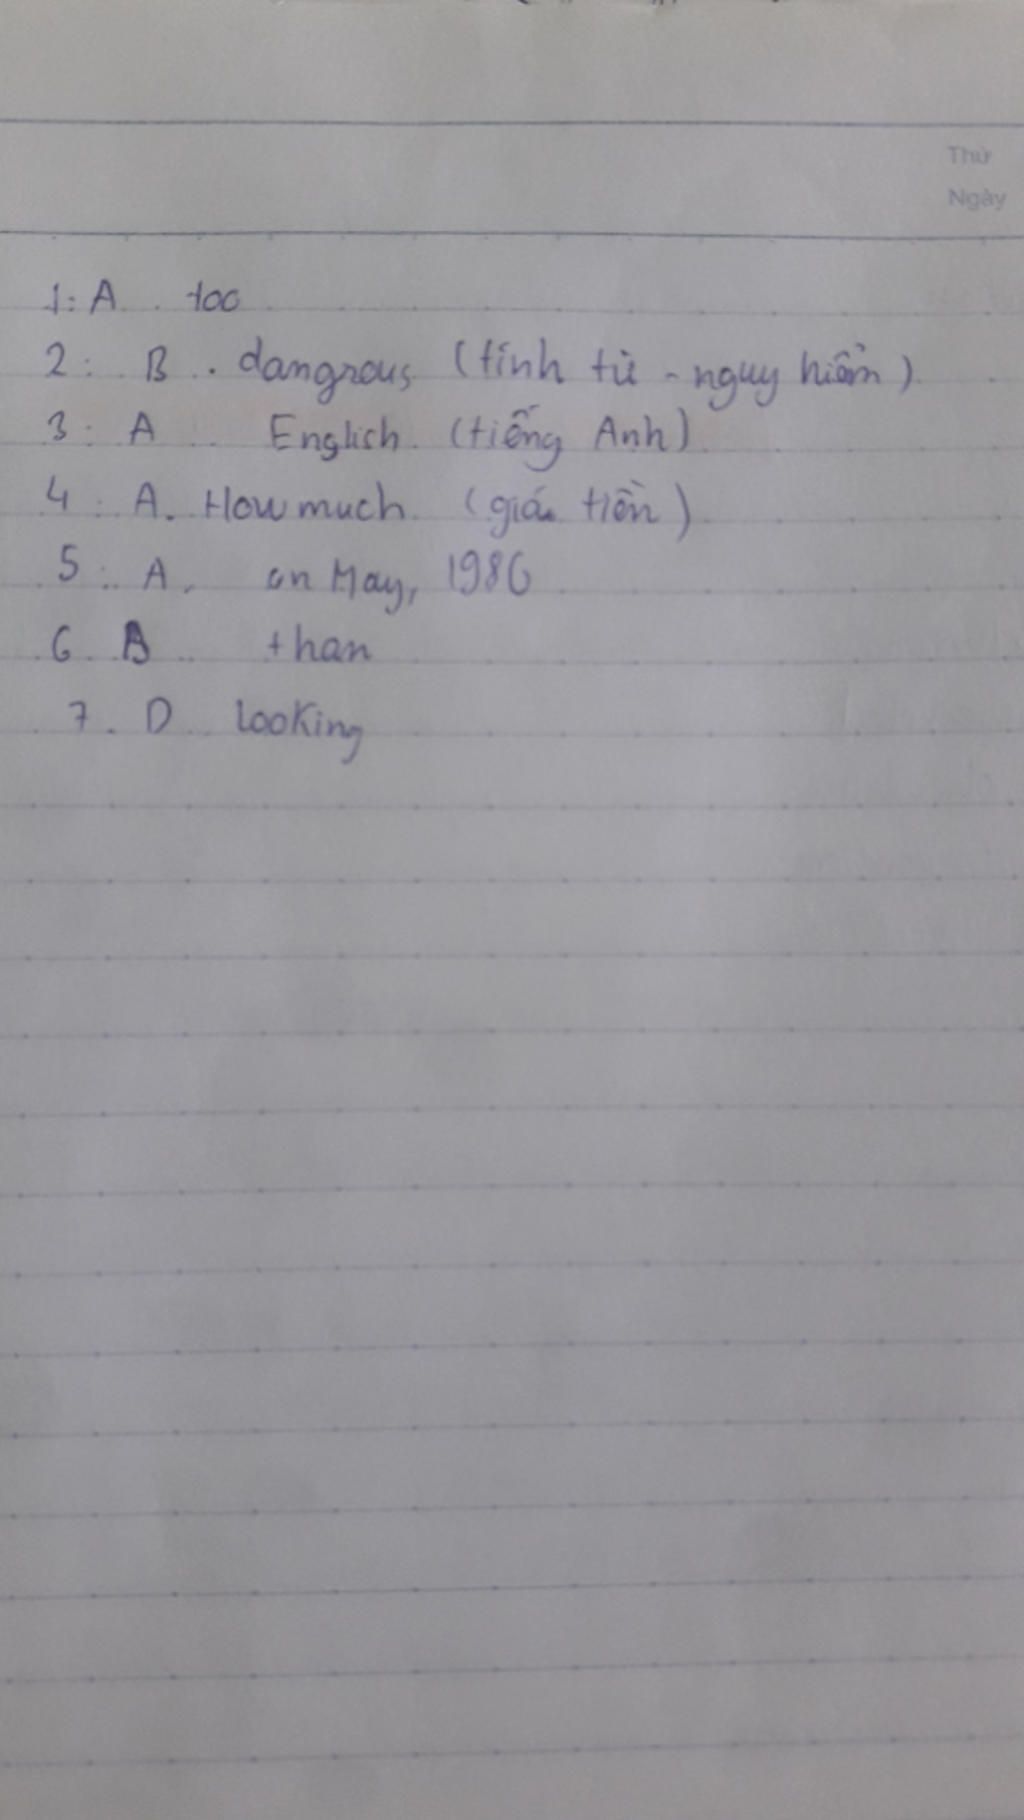 Thứ
Ngày
1: A. too
2: B. dangrous (tính từ - nguy hiểm)
3: A English (tiếng Anh)
4: A. How much (giá tiền)
5: A. on May, 1986
6 B than
7. D looking